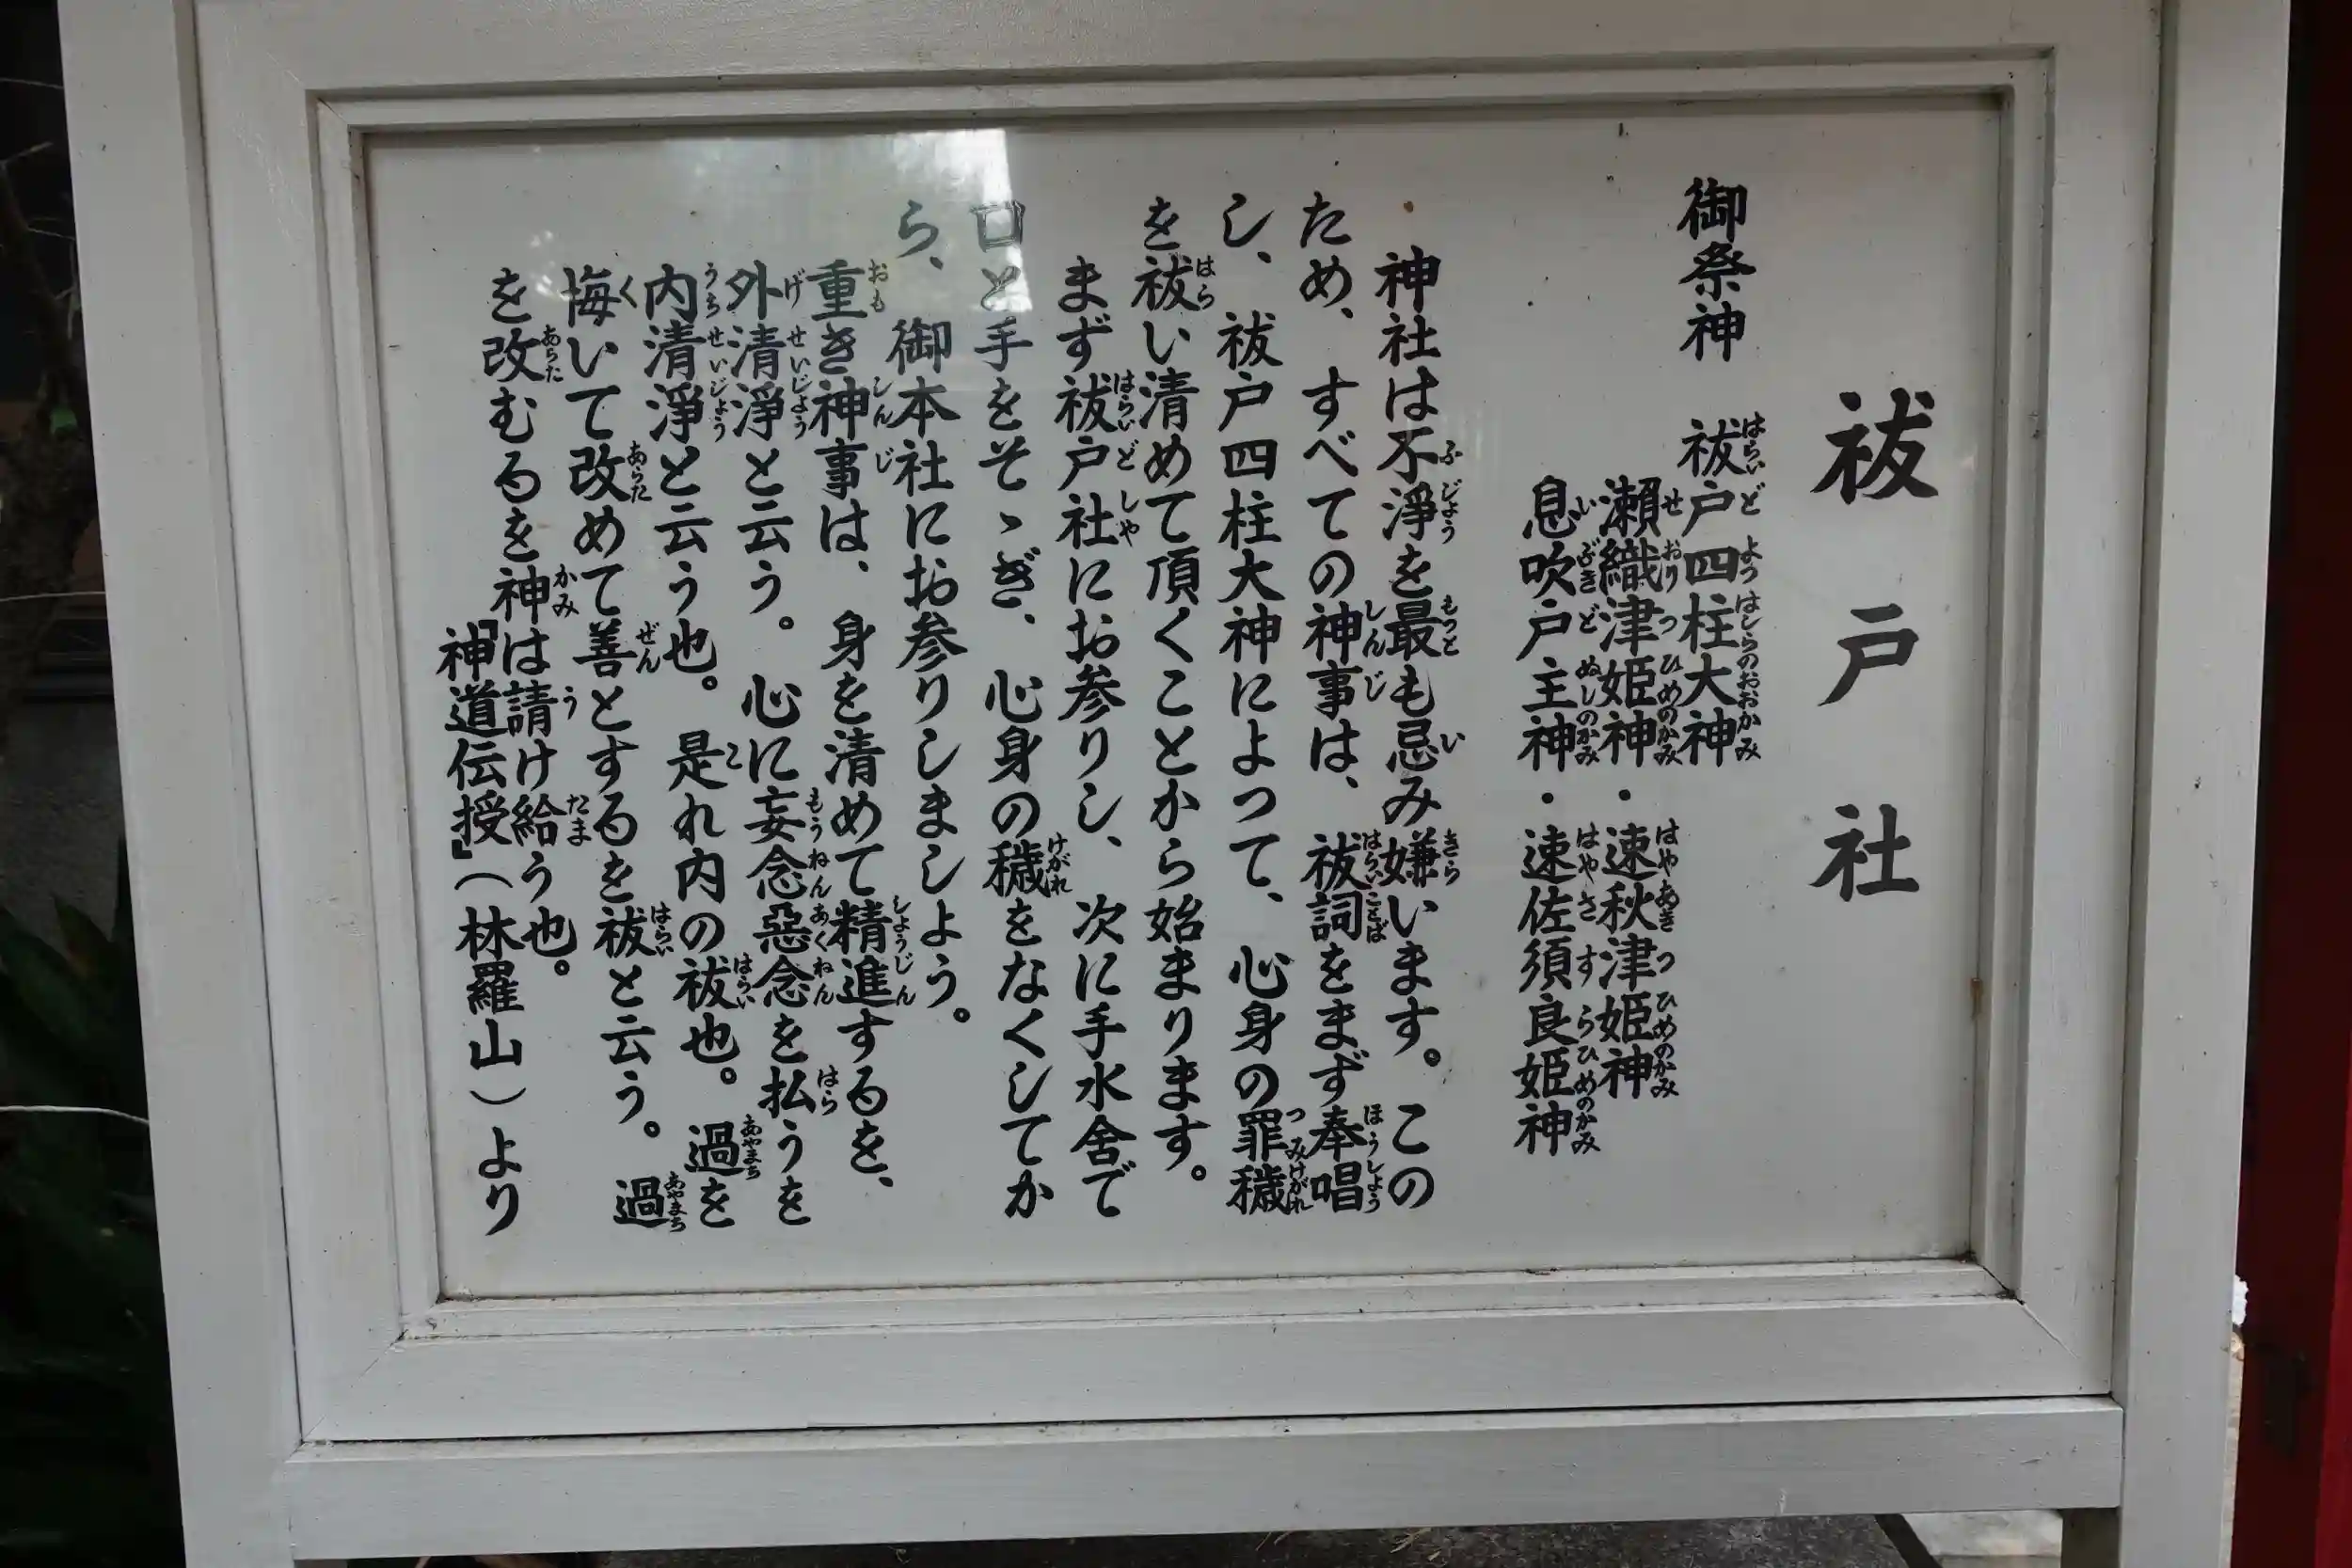 祓戸社
御祭神　祓戸四柱大神
瀬織津姫神・速秋津姫神
息吹戸主神・速佐須良姫神
神社は不淨を最も忌み嫌います。この
ため、すべての神事は、祓詞をまず奉唱
し、祓戸四柱大神によって、心身の罪穢
を祓い清めて頂くことから始まります。
まず祓戸社にお参りし、次に手水舎で
口と手をそゝぎ、心身の穢をなくしてか
ら、御本社にお参りしましょう。
重き神事は、身を清めて精進するを、
外清淨と云う。心に妄念惡念を払うを
内清淨と云う也。是れ内の祓也。過を
悔いて改めて善とするを祓と云う。過
を改むるを神は請け給う也。
『神道伝授』（林羅山）より